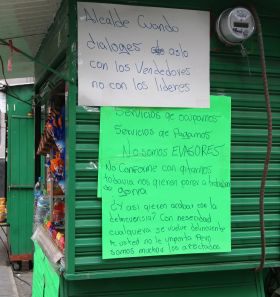 Alcalde Cuando
dialoges aslo
con los Vendedores
no con los lideres
Servicios qe ocupamos
Servicios qe Pagamos
No somos EVASORES
No Conforme con qitarnos
todavia nos qieren poner a trabajar
de gorra
¿Y asi qieren acabar con la
delincuencia? Con nesecidad
cualquiera se vuelve delincuente
a usted no le importa Pero
somos muchos los afectados